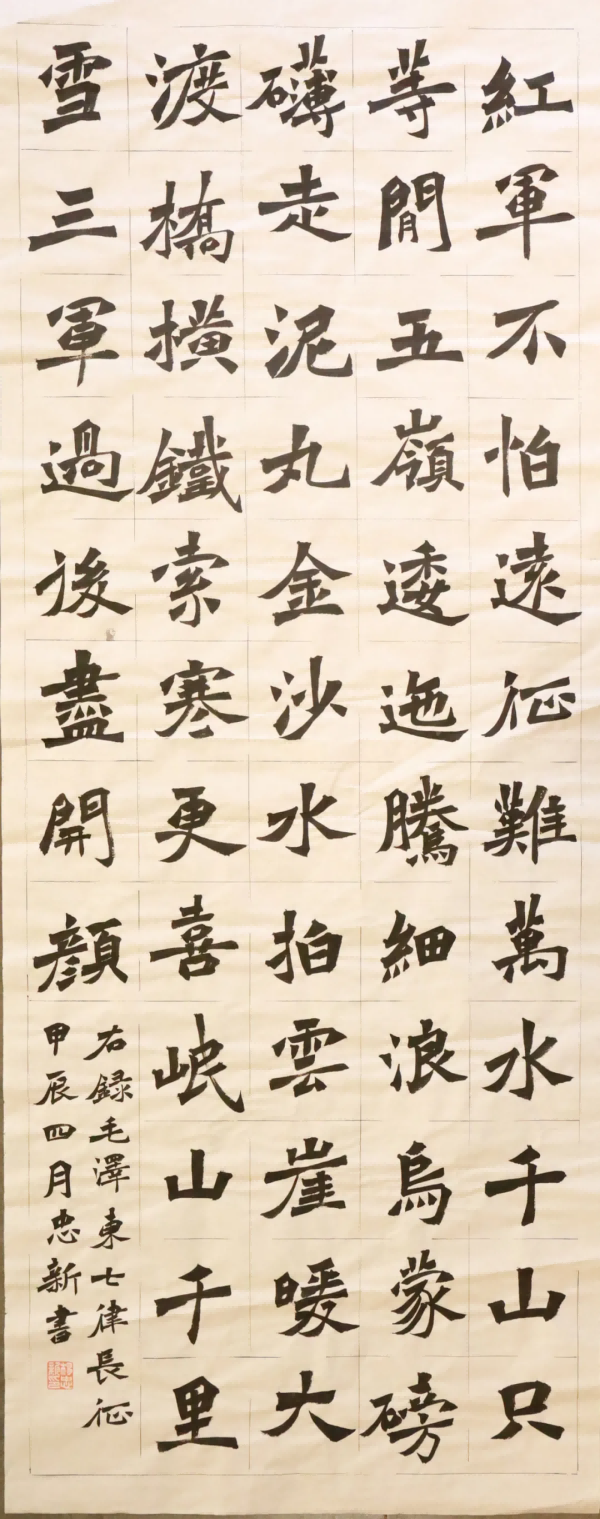 紅軍不怕遠征難萬水千山只
等閒五嶺逶迤騰細浪烏蒙磅
礴走泥丸金沙水拍雲崖暖大
渡橋橫鐵索寒更喜岷山千里
雪三軍過後盡開顏
右録毛澤東七律長征
甲辰四月忠新書